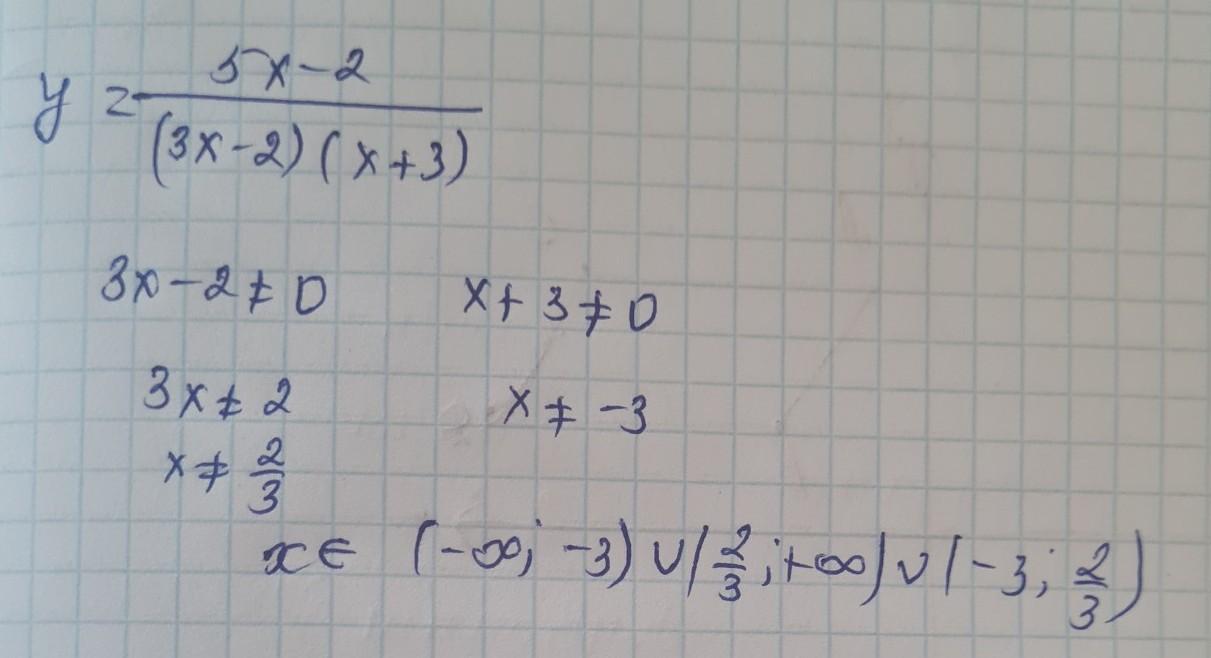 y = 5x-2 / (3x-2)(x+3)
3x-2≠0 x+3≠0
3x≠2 x≠-3
x≠2/3
x∈ (-∞; -3)∪(2/3;+∞)∪(-3; 2/3)